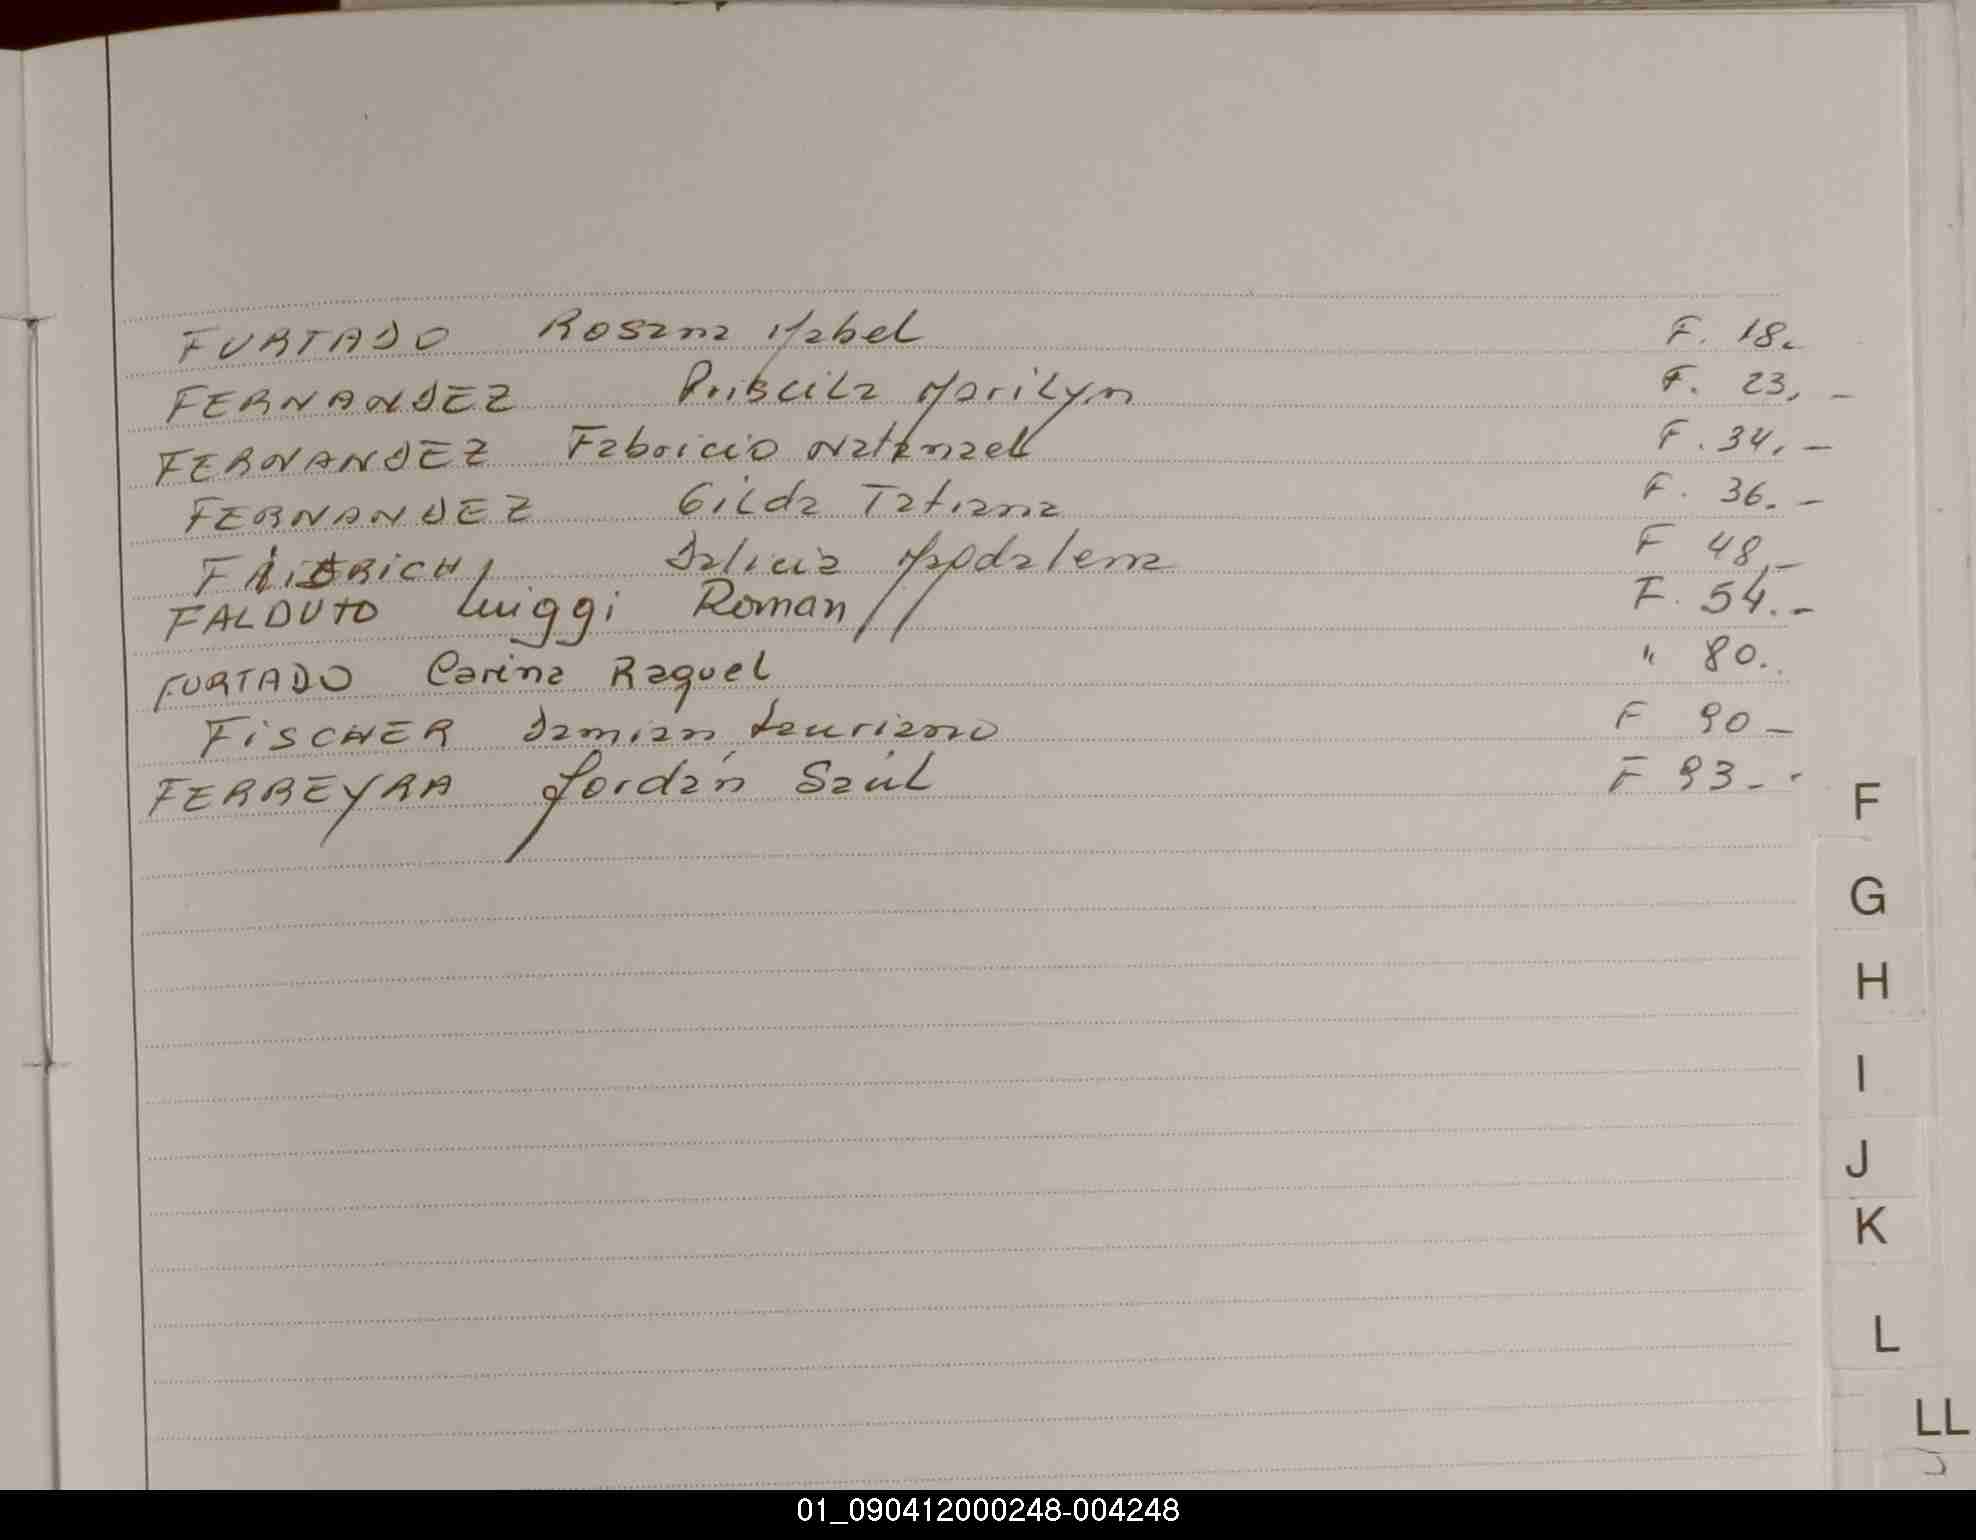 FURTADO Rosana Mabel F. 18.
FERNANDEZ Priscila Marilyn F. 23.-
FERNANDEZ Fabricio Natanael F. 34.-
FERNANDEZ Gilda Tatiana F. 36.-
Magdalena F 48.-
FALDUTO Luiggi Roman F. 54.-
FURTADO Carina Raquel " 80.
FiSCHER Damian F 90-
FERREYRA Jordán Saúl F 93-
F
G
H
I
J
K
L
LL
01_090412000248-004248